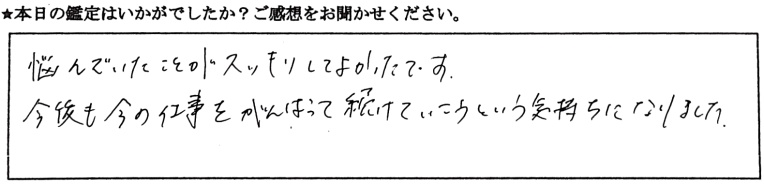 ★本日の鑑定はいかがでしたか？ご感想をお聞かせください。
悩んでいたことがスッキリしてよかったです.
今後も今の仕事をがんばって続けていこうという気持ちになりました.